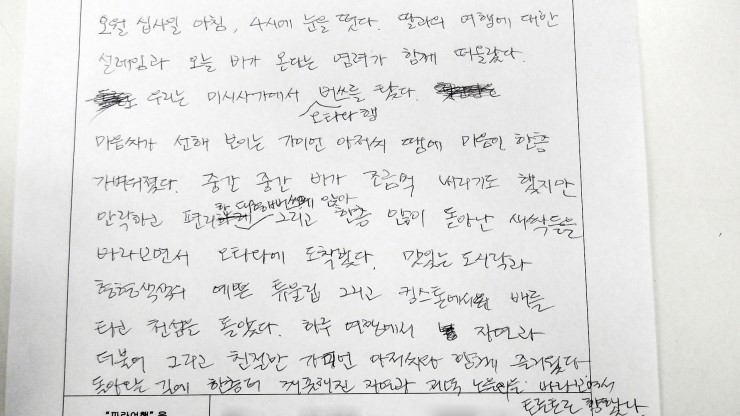 오월 십사일 아침, 4시에 눈을 떴다. 딸과의 여행에 대한
설레임과 오늘 비가 온다는 염려가 함께 떠올랐다.
우리는 미시사가에서 버쓰를 탔다.
오타와행
마음씨가 선해 보이는 가이언 아저씨 땜에 마음이 한층
가벼워졌다. 중간 중간 비가 조금씩 내리기도 했지만
안락하고 편리한 대형버쓰에 앉아 그리고 한층 많이 돋아난 새싹들을
바라보면서 오타와에 도착했다. 맛있는 도시락과
형형색색의 예쁜 튜울립 그리고 킹스톤에서 배를
타고 천섬을 돌았다. 하루 여행에서 자연과
더불어 그리고 친절한 가이언 아저씨와 함께 즐거웠다
돌아오는 길에 한층더 깨끗해진 자연과 저녁 노을을 바라보면서
토론토로 향했다.
"파란여행"을